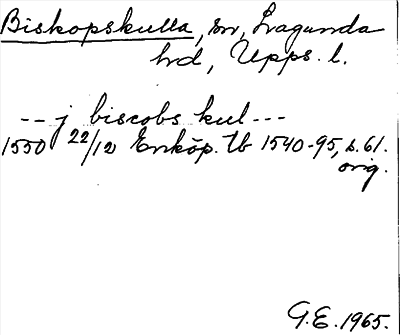 Biskopskulla, sn, Lagunda
hd, Upps. l.
--- j biscobs kul ---
1550 22/12 Enköp. tb 1540-95, s. 61.
orig.
G.E. 1965.